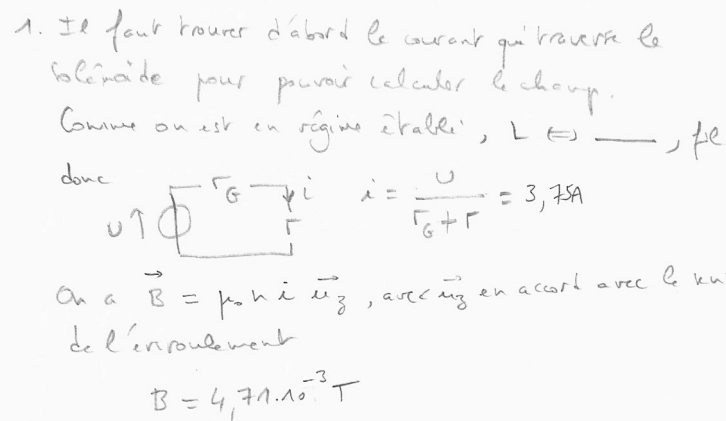 1. Il faut trouver d'abord le courant qui traverse le
solénoïde pour pouvoir calculer le champ.
Comme on est en régime établi, L ⇔ ——, fil
donc
r_G i
U ↑ r
i = U / (r_G + r) = 3,75A
On a B⃗ = μ₀ n i u⃗_z, avec u⃗_z en accord avec le sens
de l'enroulement
B = 4,71.10⁻³ T